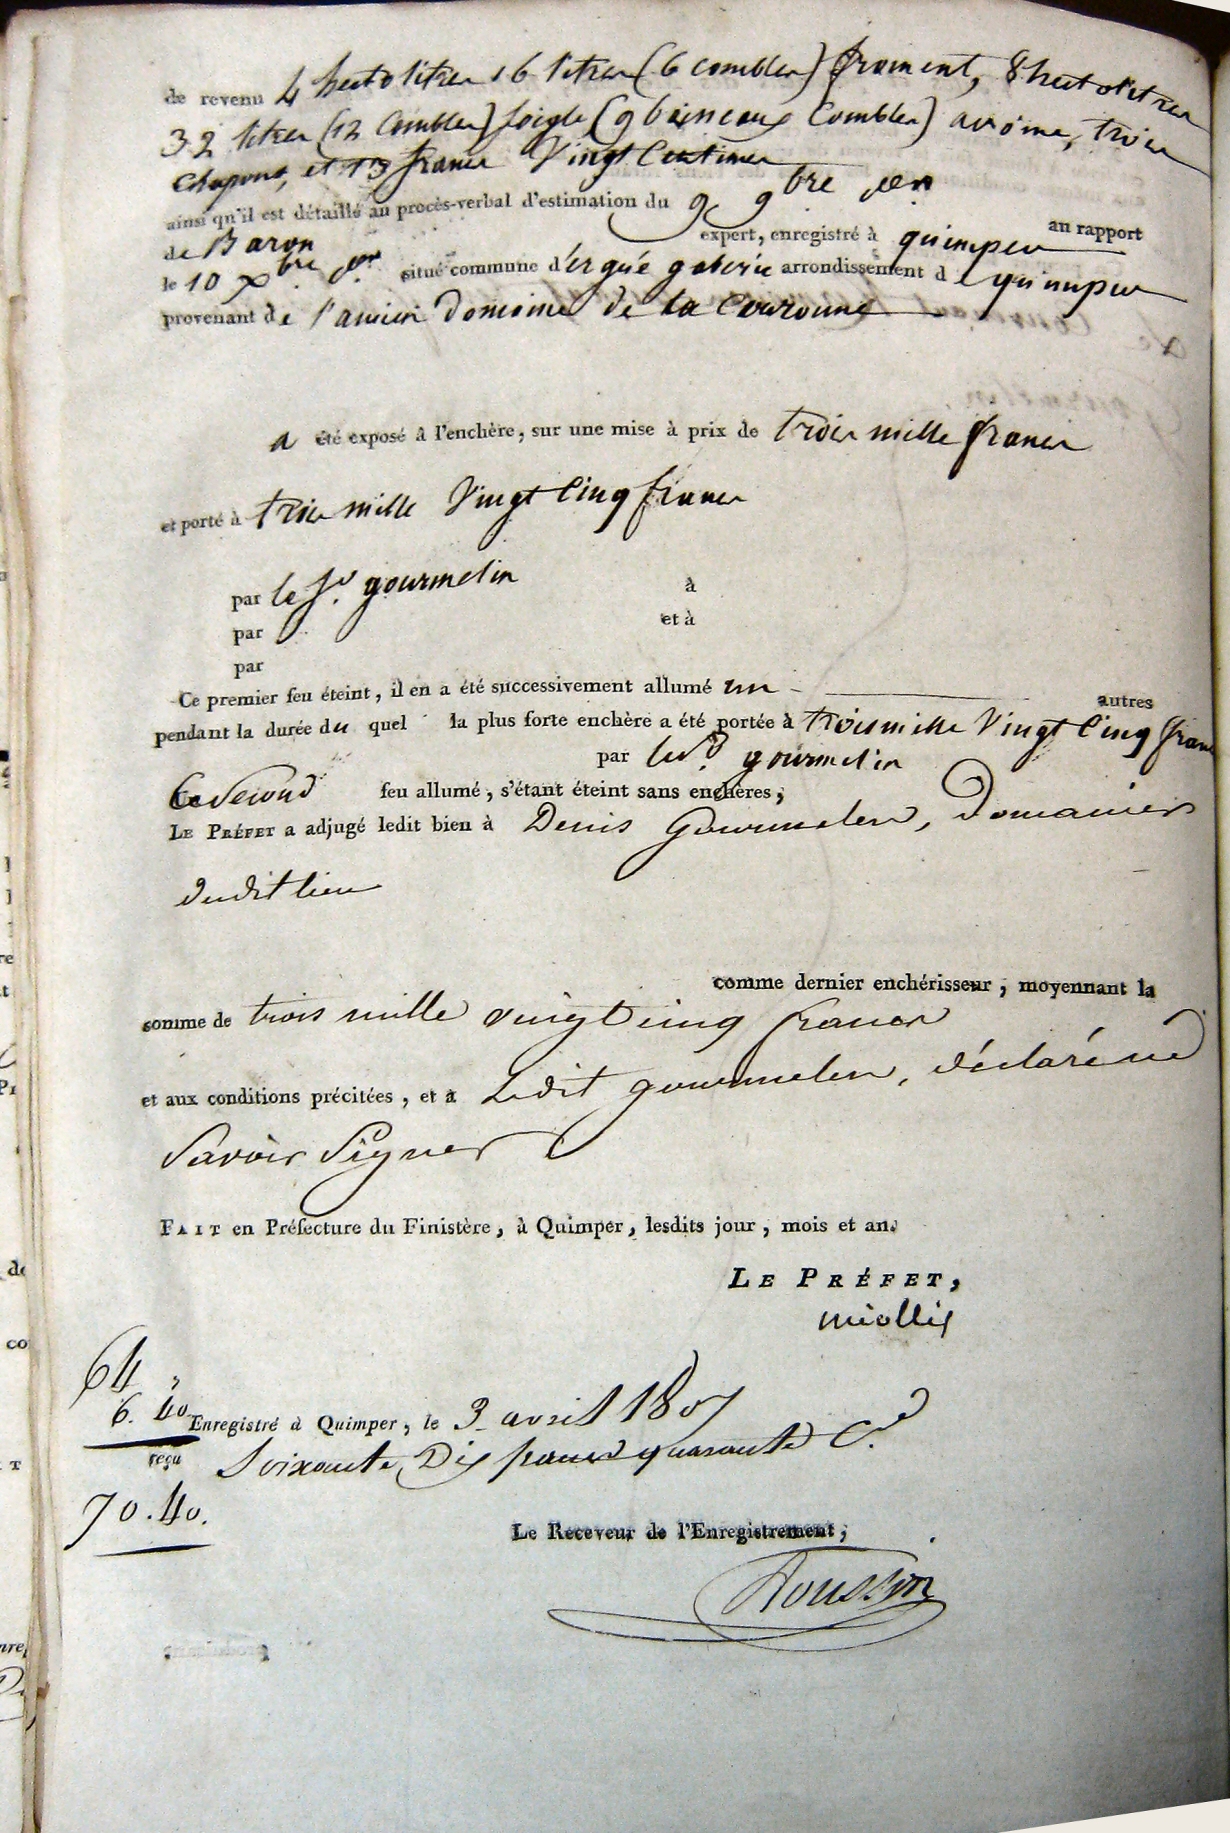 de revenu 4 hectolitres 16 litres (6 combles) froment, 8 hectolitres
32 litres (12 Combles) seigle (9 boisseaux Combles) avoine, trois
Chapons, et 13 francs Vingt Centimes
ainsi qu'il est détaillé au procès-verbal d'estimation du 9 9bre dern au rapport
de Baron expert, enregistré à quimper
le 10 Xbre der situé commune d'ergué gaberic arrondissement de quimper
provenant de l'ancien Domaine de la Couronne
a été exposé à l'enchère, sur une mise à prix de trois mille francs
et porté à trois mille Vingt Cinq francs
par le Sr. gourmelin à
par et à
par
Ce premier feu éteint, il en a été successivement allumé un autres
pendant la durée du quel la plus forte enchère a été portée à trois mille Vingt Cinq franc
par led. gourmelin
Ce Second feu allumé, s'étant éteint sans enchères,
LE PRÉFET a adjugé ledit bien à Denis Gourmelen, Domanier
dudit lieu
comme dernier enchérisseur, moyennant la
somme de trois mille vingt cinq francs
et aux conditions précitées, et a Ledit gourmelen, déclaré ne
Savoir Signer
FAIT en Préfecture du Finistère, à Quimper, lesdits jour, mois et an.
LE PRÉFET,
miollis
64 "
6. 40
Enregistré à Quimper, le 3 avril 1807
reçu Soixante Dix francs quarante C.
70.40.
Le Receveur de l'Enregistrement,